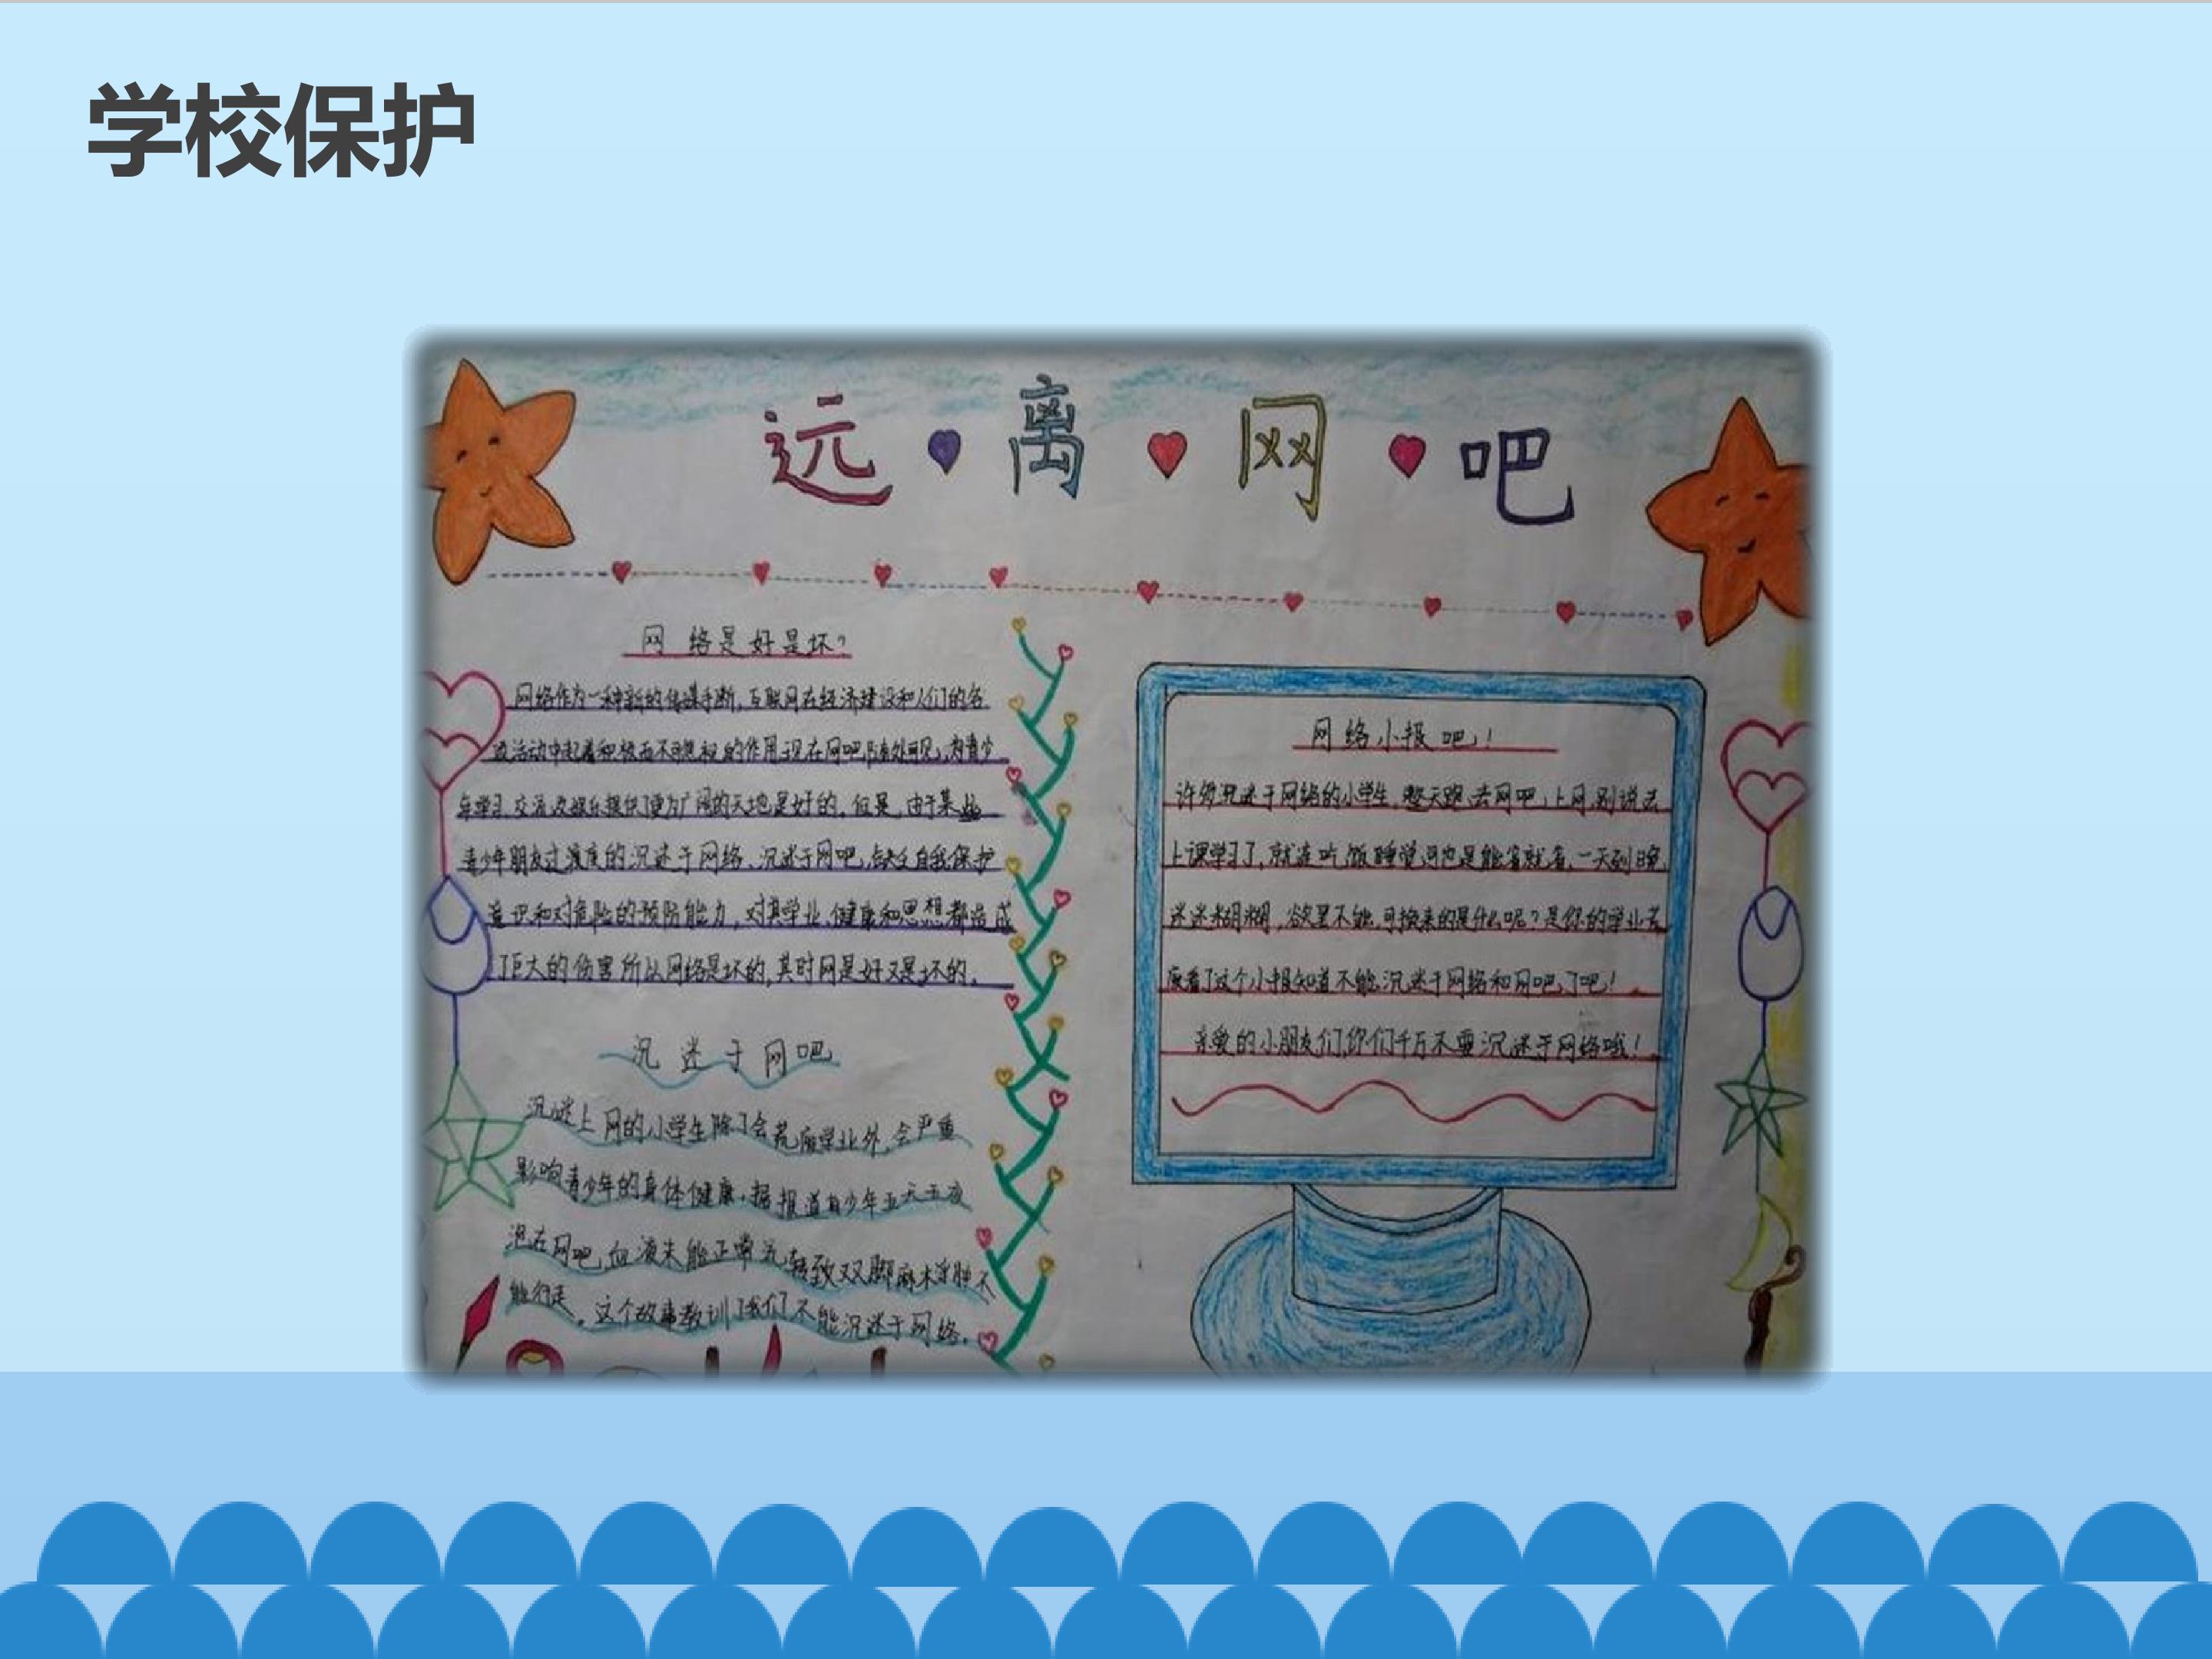 学校保护
远离网吧
网络是好是坏?
网络作为一种新的传媒手断,互联网在经济建设和人们的各
活动中起着积极而不可忽视的作用.现在网吧随处可见,为青少
年学习、交流及娱乐提供了更为广阔的天地是好的。但是,由于某些
青少年朋友过渡度的沉迷于网络、沉迷于网吧,缺乏自我保护
意识和对危险的预防能力,对其学业、健康和思想都造成
了巨大的伤害所以网络是坏的,其时网是好又是坏的。
沉迷于网吧
沉迷上网的小学生除了会荒废学业外,会严重
影响青少年的身体健康,据报道有少年五天五夜
泡在网吧,血液未能正常流转致双脚麻木浮肿不
能行走。这个故事教训了我们不能沉迷于网络。
网络小报吧!
许多沉迷于网络的小学生,整天跑去网吧上网,别说去
上课学习了,就连吃饭睡觉也是能省就省,一天到晚
迷迷糊糊,可换来的是什么呢?是你的学业荒
废看了这个小报知道不能沉迷于网络和网吧了吧!
亲爱的小朋友们你们千万不要沉迷于网络哦!